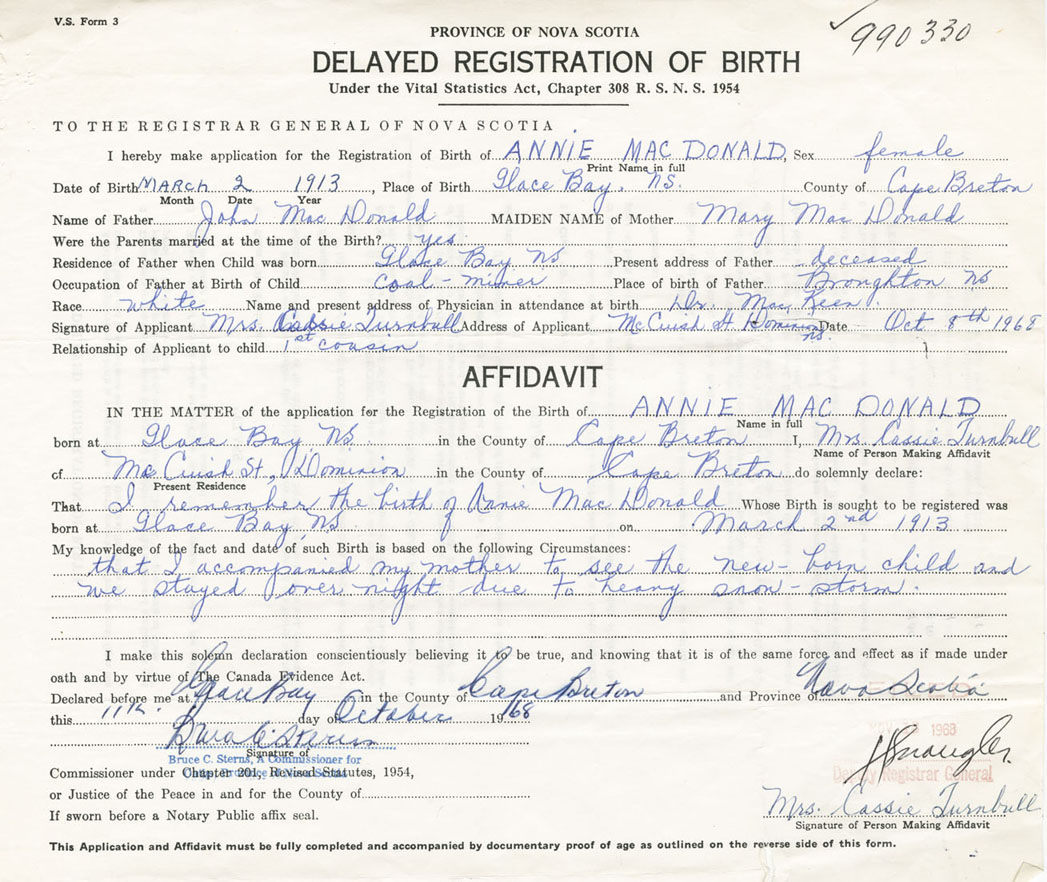 V.S. Form 3
990330
PROVINCE OF NOVA SCOTIA
DELAYED REGISTRATION OF BIRTH
Under the Vital Statistics Act, Chapter 308 R. S. N. S. 1954
TO THE REGISTRAR GENERAL OF NOVA SCOTIA
I hereby make application for the Registration of Birth of ANNIE MAC DONALD, Sex female
Print Name in full
Date of Birth MARCH 2 1913, Place of Birth Glace Bay, NS. County of Cape Breton
Month Date Year
Name of Father John Mac Donald MAIDEN NAME of Mother Mary Mac Donald
Were the Parents married at the time of the Birth? yes
Residence of Father when Child was born Glace Bay NS Present address of Father deceased
Occupation of Father at Birth of Child Coal-miner Place of birth of Father Broughton NS
Race white Name and present address of Physician in attendance at birth Dr. Mac Keen
Signature of Applicant Mrs. Cassie Turnbull Address of Applicant Mc Cuish St Dominion NS. Date Oct 8th 1968
Relationship of Applicant to child 1st cousin
AFFIDAVIT
IN THE MATTER of the application for the Registration of the Birth of ANNIE MAC DONALD
Name in full
born at Glace Bay NS. in the County of Cape Breton I, Mrs. Cassie Turnbull
Name of Person Making Affidavit
of Mc Cuish St., Dominion in the County of Cape Breton do solemnly declare:
Present Residence
That I remember the birth of Annie Mac Donald Whose Birth is sought to be registered was
born at Glace Bay, NS on March 2nd 1913
My knowledge of the fact and date of such Birth is based on the following Circumstances:
that I accompanied my mother to see the new-born child and
we stayed over night due to heavy snow-storm.
I make this solemn declaration conscientiously believing it to be true, and knowing that it is of the same force and effect as if made under
oath and by virtue of The Canada Evidence Act.
Declared before me at Glace Bay in the County of Cape Breton and Province of Nova Scotia
this 11th. day of October 1968
Bruce C. Sterns
Signature of
Bruce C. Sterns, A Commissioner for
Commissioner under Chapter 201, Revised Statutes, 1954,
1968
Deputy Registrar General
or Justice of the Peace in and for the County of
Mrs. Cassie Turnbull
If sworn before a Notary Public affix seal.
Signature of Person Making Affidavit
This Application and Affidavit must be fully completed and accompanied by documentary proof of age as outlined on the reverse side of this form.